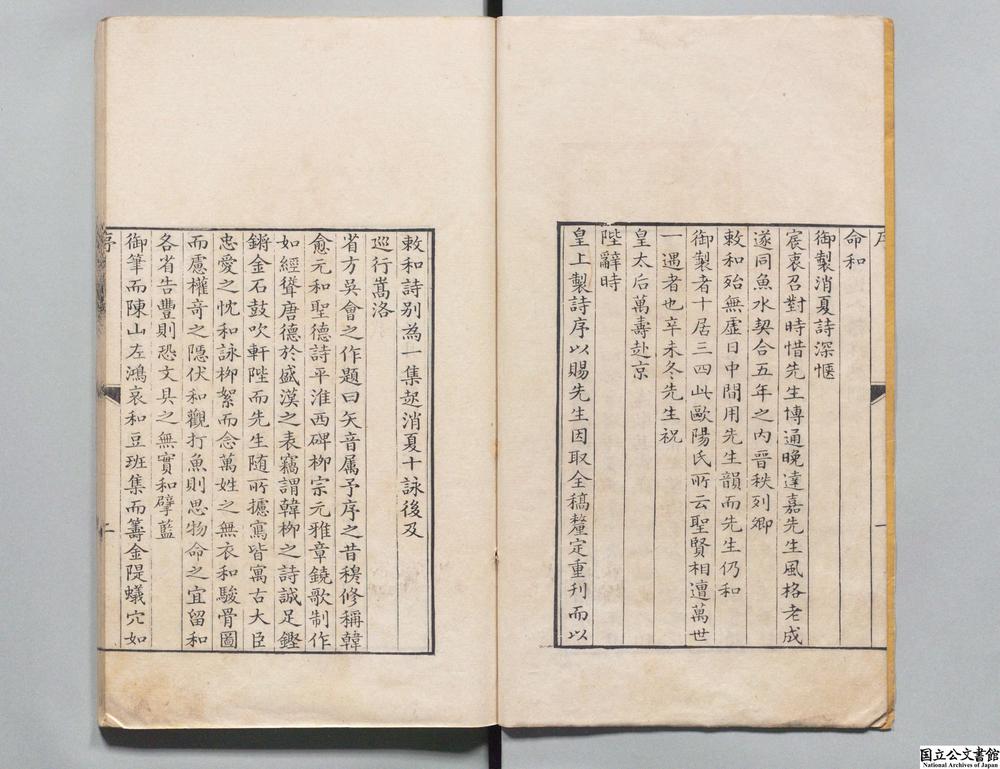 序
命和
御製消夏詩深愜
宸衷召對時惜先生博通晚達嘉先生風格老成
遂同魚水契合五年之內晉秩列卿
敕和殆無虛日中間用先生韻而先生仍和
御製者十居三四此歐陽氏所云聖賢相遭萬世
一遇者也辛未冬先生祝
皇太后萬壽赴京
陛辭時
皇上製詩序以賜先生因取全稿釐定重刊而以
一
敕和詩别為一集起消夏十詠後及
巡行嵩洛
省方吳會之作題曰矢音屬予序之昔穆修稱韓
愈元和聖德詩平淮西碑柳宗元雅章鐃歌制作
如經聳唐德於盛漢之表竊謂韓柳之詩誠足鏗
鏘金石鼓吹軒陛而先生随所攄寫皆寓古大臣
忠愛之忱和詠柳絮而念萬姓之無衣和駿骨圖
而慮權奇之隱伏和觀打魚則思物命之宜留和
各省告豐則恐文具之無實和擘藍
御筆而陳山左鴻哀和豆班集而籌金隄蟻穴如
序
二
国立公文書館
National Archives of Japan